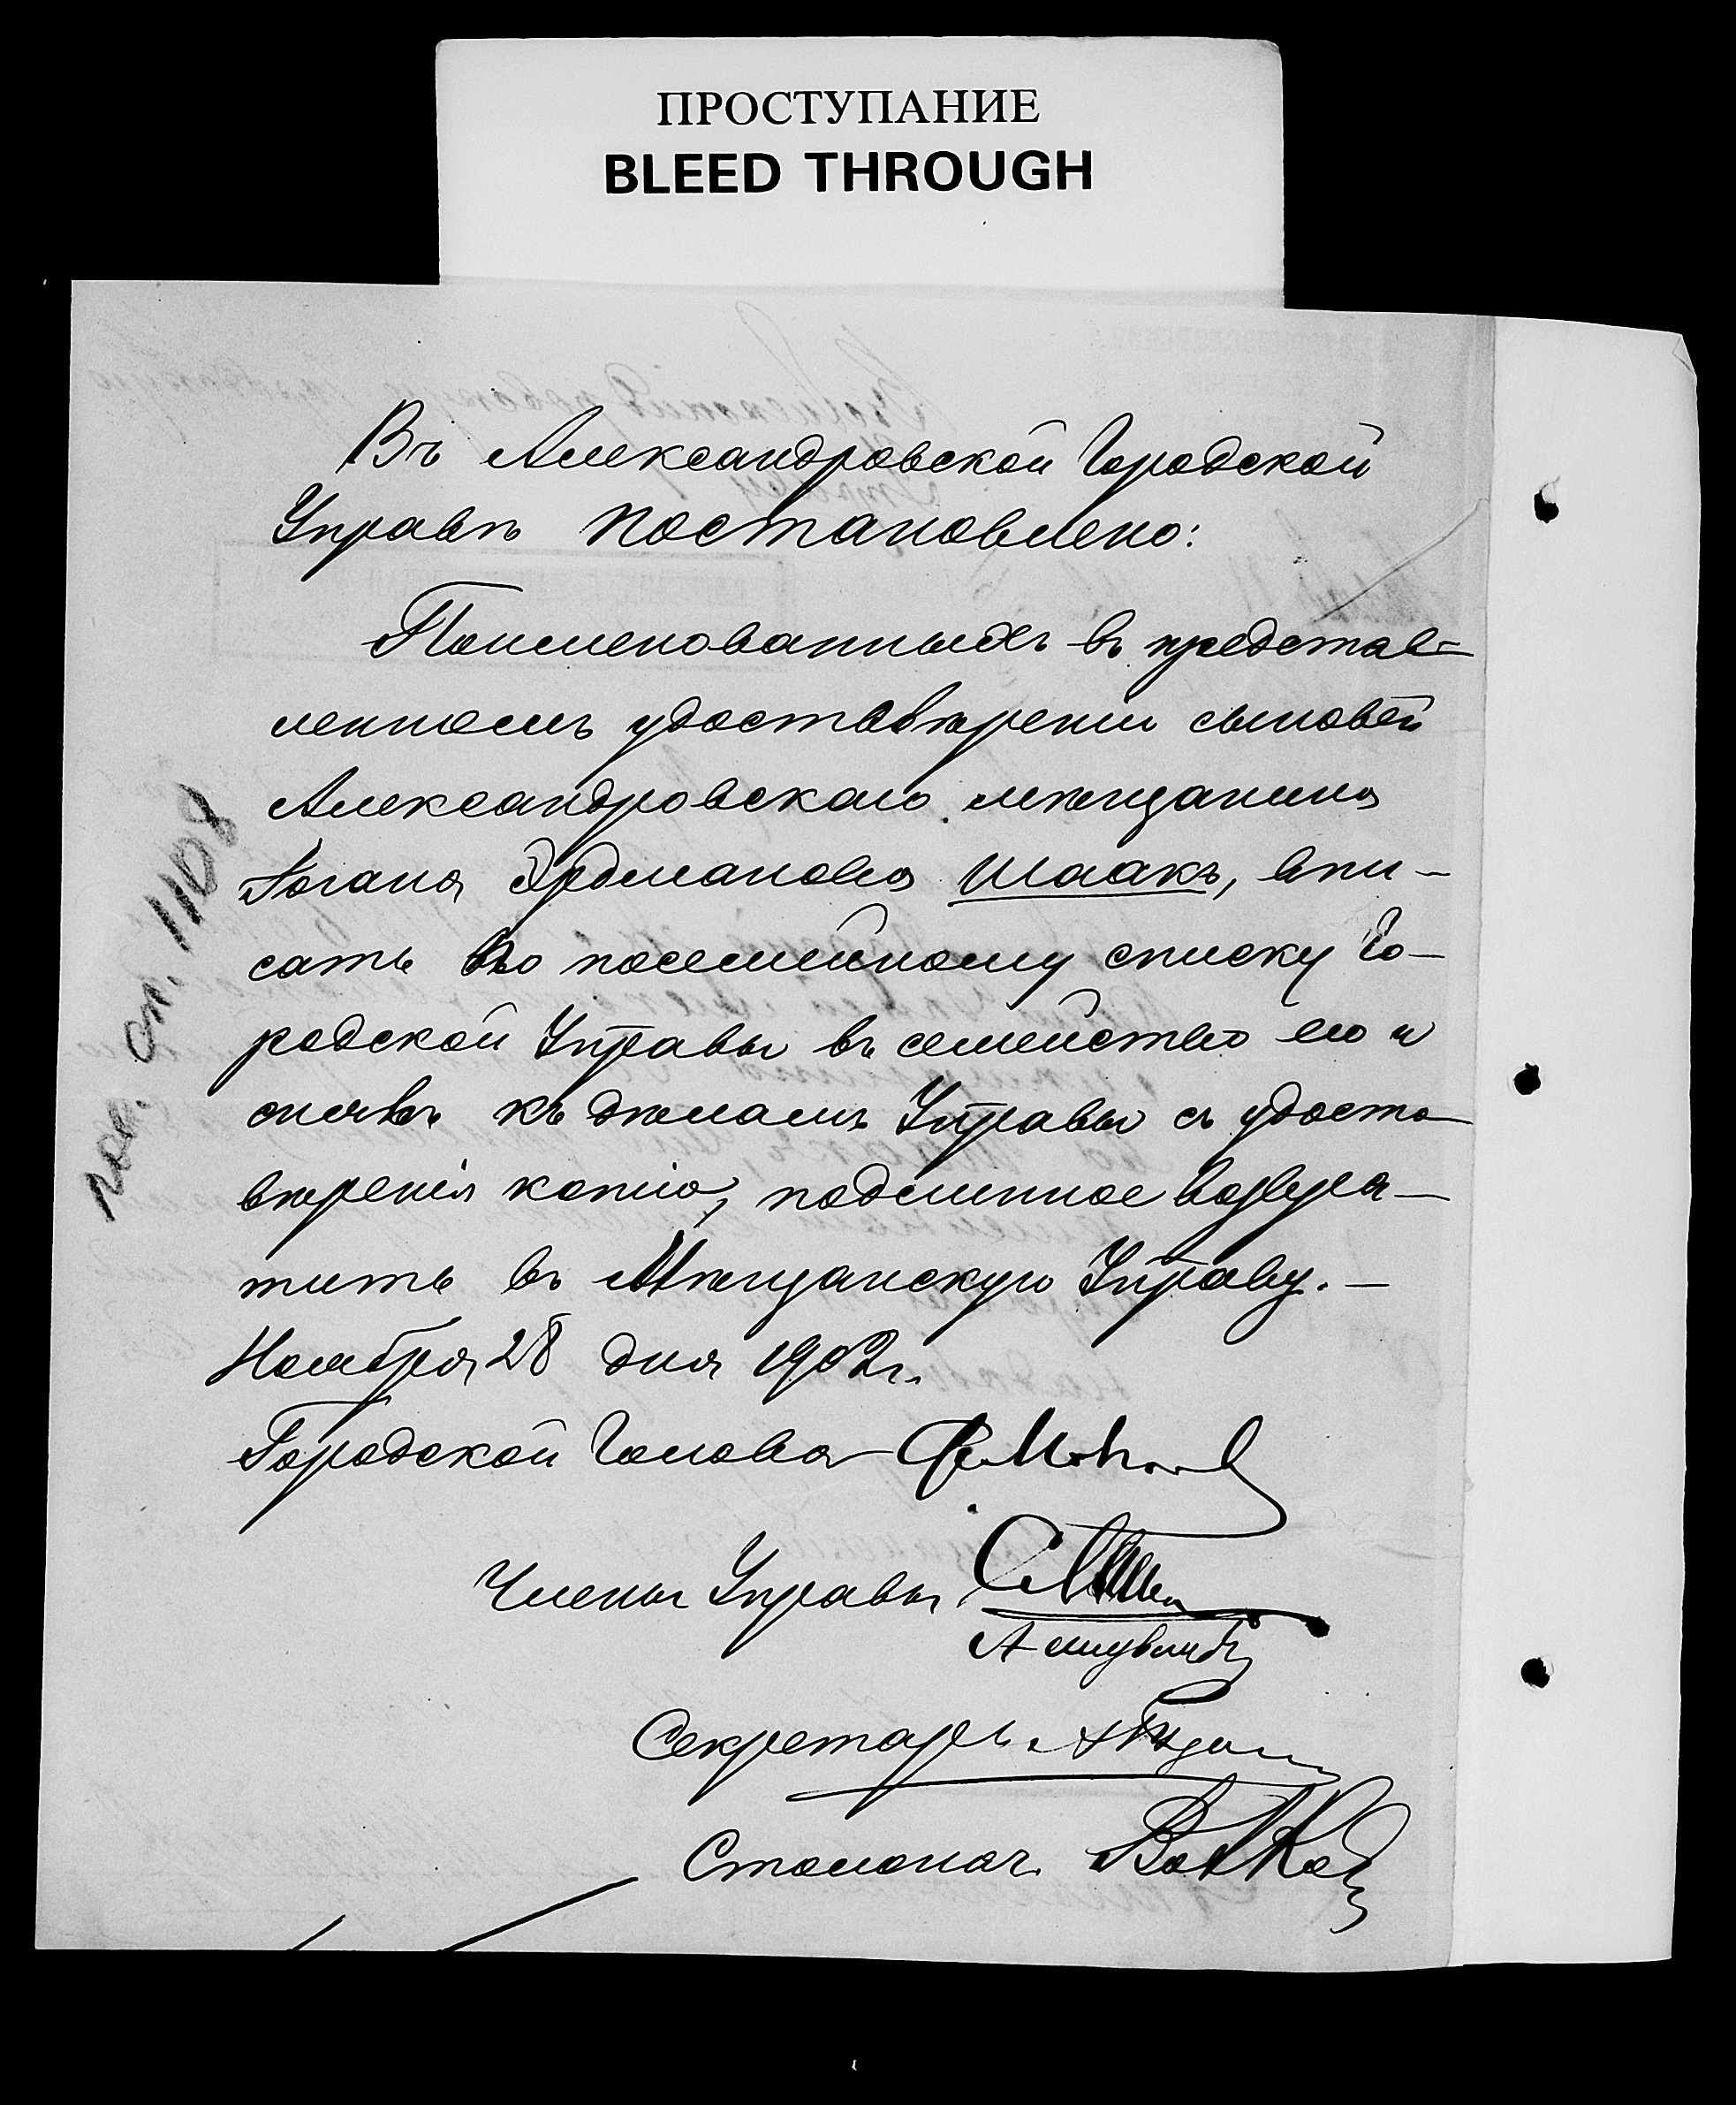 ПРОСТУПАНИЕ
BLEED THROUGH
Въ Александровской Городской
Управѣ постановлено:
Поименованныхъ въ представ-
ленномъ удостовѣреніи сыновей
Александровскаго мѣщанина
Іогана Эрдманова Шаакъ, впи-
сать по посемейному списку Го-
родской Управы въ семейство его и
снявъ къ дѣламъ Управы съ удосто
вѣренія копію, подлинное возвра-
тить въ Мѣщанскую Управу.-
Ноября 28 дня 1902 г.
Городской Голова
Члены Управы
Секретарь
Столонач.
1108